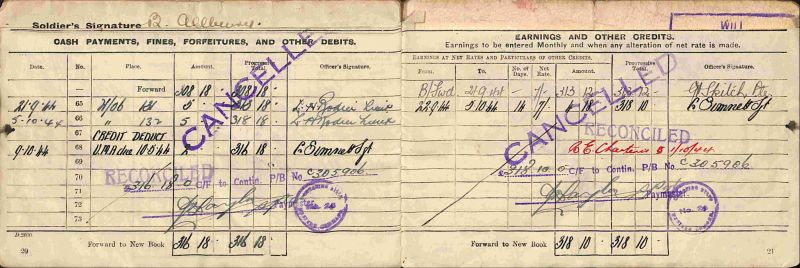 Soldier's Signature B. Allbury.
CASH PAYMENTS, FINES, FORFEITURES, AND OTHER DEBITS.
Date. No. Place. Amount. Progressive Total. Officer's Signature.
Forward 308 18 308 18
21-9-44 65 5 313 18
5-10-44 66 " 132 5 318 18
67 CREDIT DEDUCT
9-10-44 68 10-5-44 2 316 18 Sjt
69
70 £316 18 0 C/F to Contin. P/B No C305906
71
72 Paymaster
73
RECONCILED
CANCELLED
No. 28
D.2600.
Forward to New Book 316 18 316 18
20
WILL
EARNINGS AND OTHER CREDITS.
Earnings to be entered Monthly and when any alteration of net rate is made.
EARNINGS AT NET RATES AND PARTICULARS OF OTHER CREDITS.
From. To. No. of Days. Net Rate. Amount. Progressive Total. Officer's Signature.
B/Fwd 21.9.44 - 7/- 313 12 313 12
22.9.44 5.10.44 14 7/- 4 18 318 10 Sjt
RECONCILED
CANCELLED
£318 10 0 C/F to Contin. P/B No C305906
Paymaster
No. 28
Forward to New Book 318 10 318 10
21